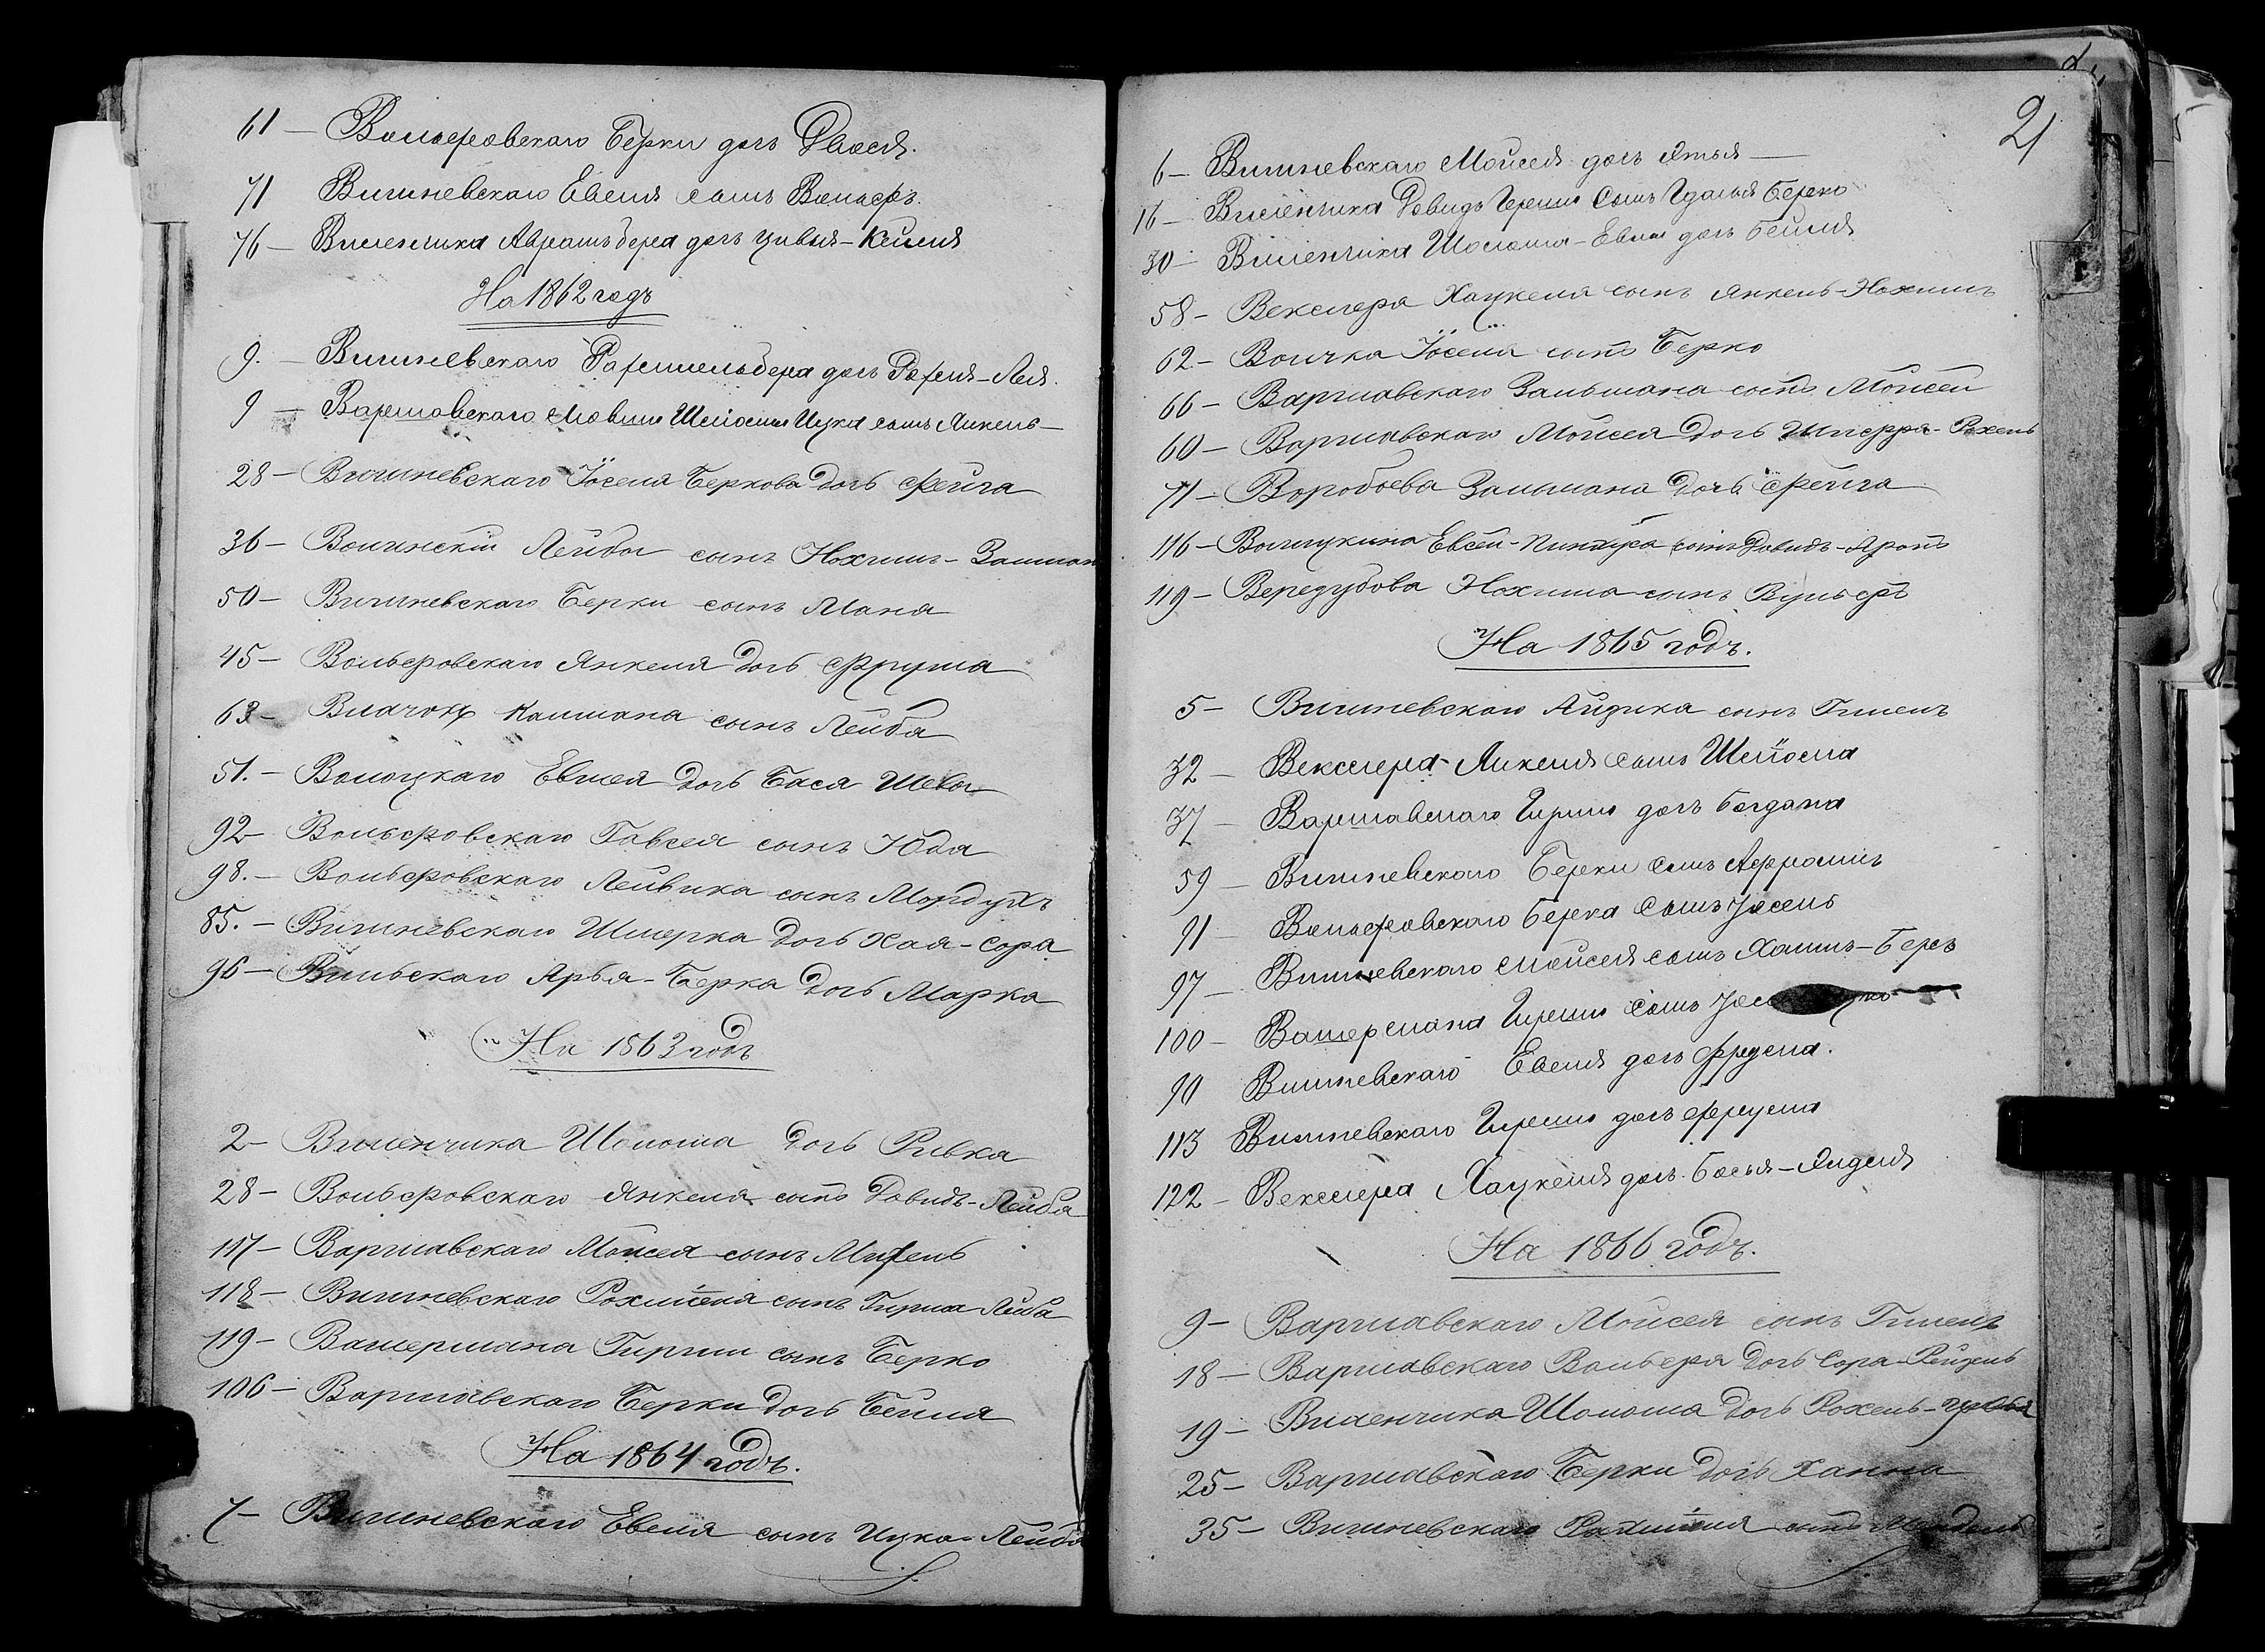 61 — Вольфовскаго Берки дочь Двося.
71 Вишневскаго Евеля сынъ Вольфъ.
76 — Виленчика Аврамъ бера дочь Цивья - Кейля
На 1862 годъ
9. — Вишневскаго дочь Рохля - Лея.
9 — Варшавскаго Мовши Шлиомы Ицка сынъ Янкель —
28 — Вишневскаго Іоселя Беркова дочь Фейга
36 — Лейбы сынъ Нохимъ - Залман
50 — Вишневскаго Берки сынъ Маня
45 — Вольфовскаго Янкеля дочь Фрума
63 — Калмана сынъ Лейба
51. — Волоцкаго Евеля дочь Бася Шева
92 — Вольфовскаго Говсея сынъ Юда
98. — Вольфовскаго Лейвика сынъ Мордухъ
85. — Вишневскаго Шмерка дочь Хая - Сора
96 — Вильскаго Арья - Берка дочь Марка
На 1863 годъ
2 — Виленчика Шолома дочь Ривка
28 — Вольфовскаго Янкеля сынъ Довидъ - Лейба
117 — Варшавскаго Мойсея сынъ Михель
118 — Вишневскаго Рохмиеля сынъ Гирша Лейба
119 — Васермана Гирши сынъ Берко
106 — Варшавскаго Берки дочь Бейля
На 1864 годъ.
7 — Вишневскаго Евеля сынъ Ицка - Лейба
21
6 — Вишневскаго Мойсея дочь —
16 — Виленчика Довидъ Герши сынъ Гдалья Берко
30 — Виленчика Шолома - Евеля дочь Бейля
58 — Векслера Хацкеля сынъ Янкель - Нохимъ
62 — Волчка Іоселя сынъ Берко
66 — Варшавскаго Зальмана сынъ Мойсей
60 — Варшавскаго Мойсея дочь Шпера - Рохель
71 — Воробьева Зальмана дочь Фейга
116 — Евсей - сынъ Довидъ - Аронъ
119 — Вередубова Нохима сынъ Вульфъ
На 1865 годъ.
5 — Вишневскаго Айзика сынъ Гилелъ
32 — Векслера Янкеля сынъ Шлиома
37 — Варшавскаго Гирши дочь Богдана
59 — Вишневскаго Берки сынъ Афроимъ
91 — Вольфовскаго Берка сынъ Іосель
97 — Вишневскаго Мойсея сынъ Хаимъ - Беръ
100 — Васермана Гирши сынъ
90 Вишневскаго Евеля дочь Фрума.
113 Вишневскаго Гирши дочь Фрума
122 — Векслера Хацкеля дочь Басья - Эйдля
На 1866 годъ.
9 — Варшавскаго Мойсея сынъ Гилелъ
18 — Варшавскаго Вольфа дочь Сора - Рейзель
19 — Виленчика Шолома дочь Рохель - Цивья
25 — Варшавскаго Берки дочь Ханна
35 — Вишневскаго Рахмиеля сынъ Мендель